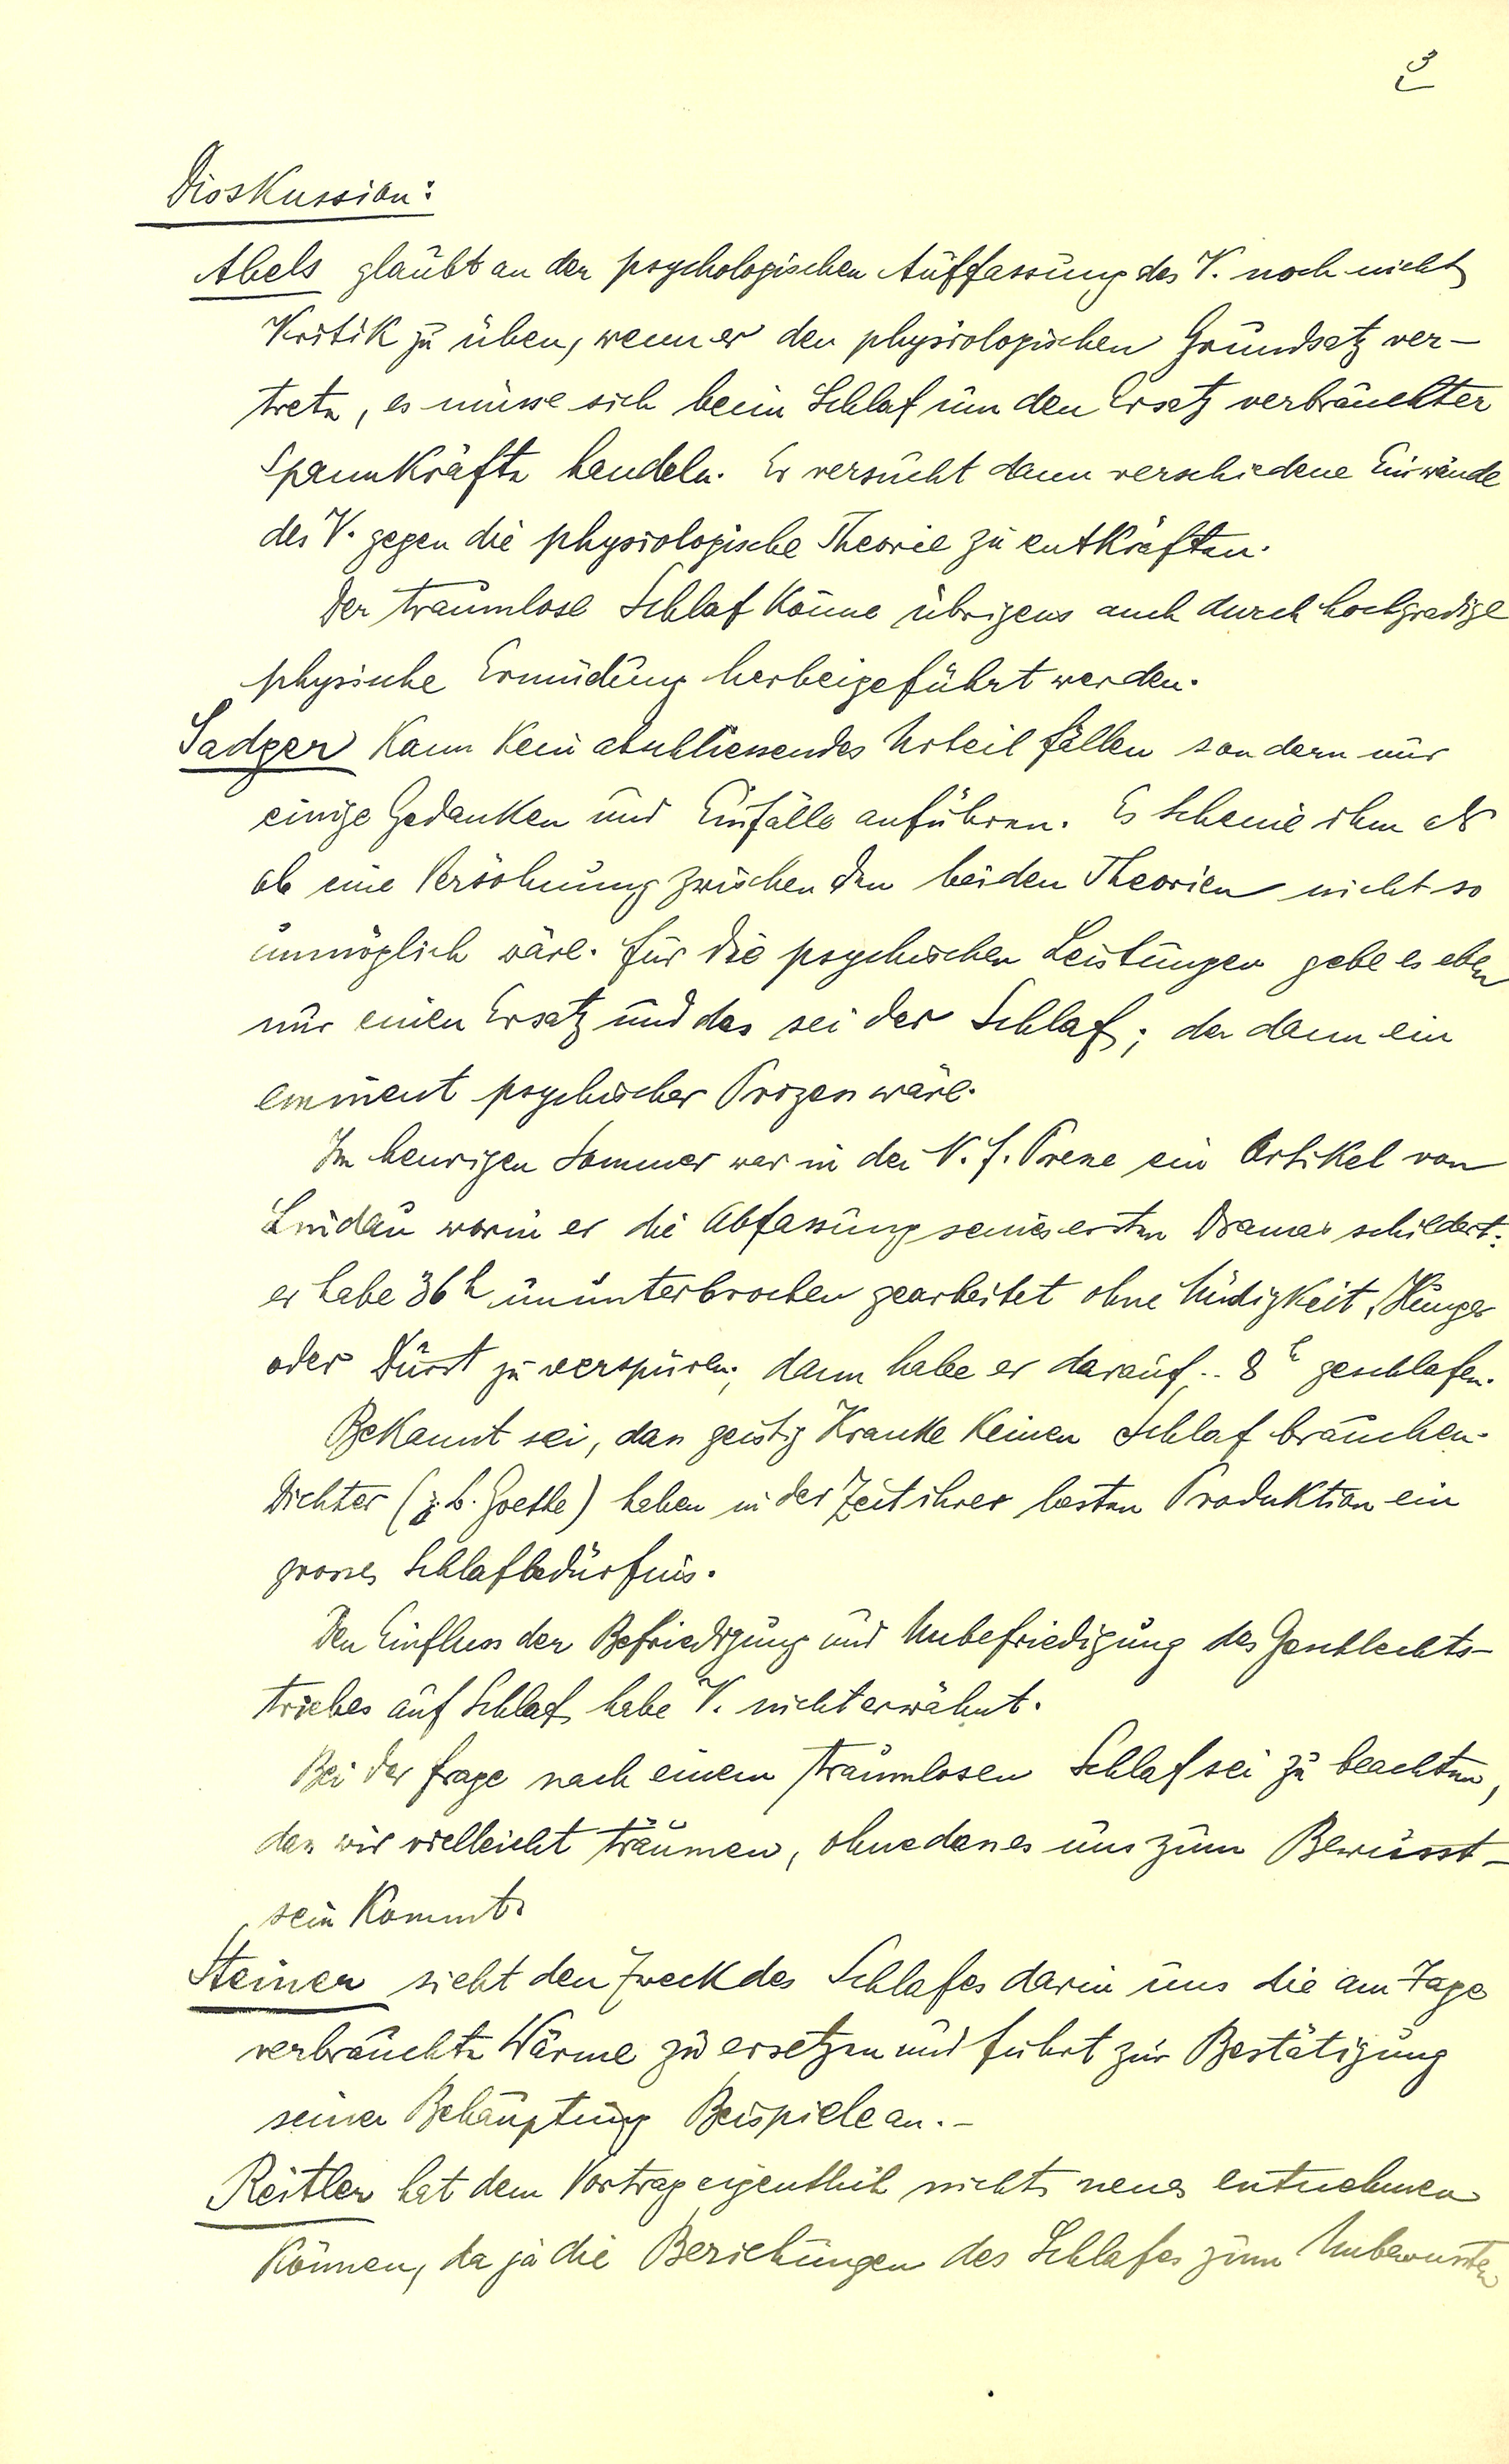 3
Dioskussion:
Abels glaubt an der psychologischen Auffassung des V. noch nicht
Kritik zu üben, wenn er den physiologischen Grundsatz ver-
trete, es müsse sich beim Schlaf um den Ersatz verbrauchter
Spannkräfte handeln. Er versucht dann verschiedene Einwände
des V. gegen die physiologische Theorie zu entkräften.
Der traumlose Schlaf könne übrigens auch durch hochgradige
physische Ermüdung herbeigeführt werden.
Sadger kann kein abschliessendes Urteil fällen sondern nur
einige Gedanken und Einfälle anführen. Es scheine ihm als
ob eine Versöhnung zwischen den beiden Theorien nicht so
unmöglich wäre. Für die psychischen Leistungen gebe es eben
nur einen Ersatz und das sei der Schlaf; der dann ein
eminent psychischer Prozess wäre.
Im heurigen Sommer war in der N. f. Presse ein Artikel von
Lindau worin er die Abfassung seines ersten Dramas schildert:
er habe 36 h ununterbrochen gearbeitet ohne Müdigkeit, Hunger
oder Durst zu verspüren; dann habe er darauf .. 8 h geschlafen.
Bekannt sei, dass geistig Kranke keinen Schlaf brauchen.
Dichter (z. b. Goethe) haben in der Zeit ihrer besten Produktion ein
grosses Schlafbedürfnis.
Den Einfluss der Befriedigung und Unbefriedigung des Geschlechts-
triebes auf Schlaf habe V. nicht erwähnt.
Bei der Frage nach einem traumlosen Schlaf sei zu beachten,
dass wir vielleicht träumen, ohne dass es uns zum Bewusst-
sein kommt.
Steiner sieht den Zweck des Schlafes darin uns die am Tage
verbrauchte Wärme zu ersetzen und führt zur Bestätigung
seiner Behauptung Beispiele an. –
Reitler hat dem Vortrag eigentlich nichts neues entnehmen
können, da ja die Beziehungen des Schlafes zum Unbewussten